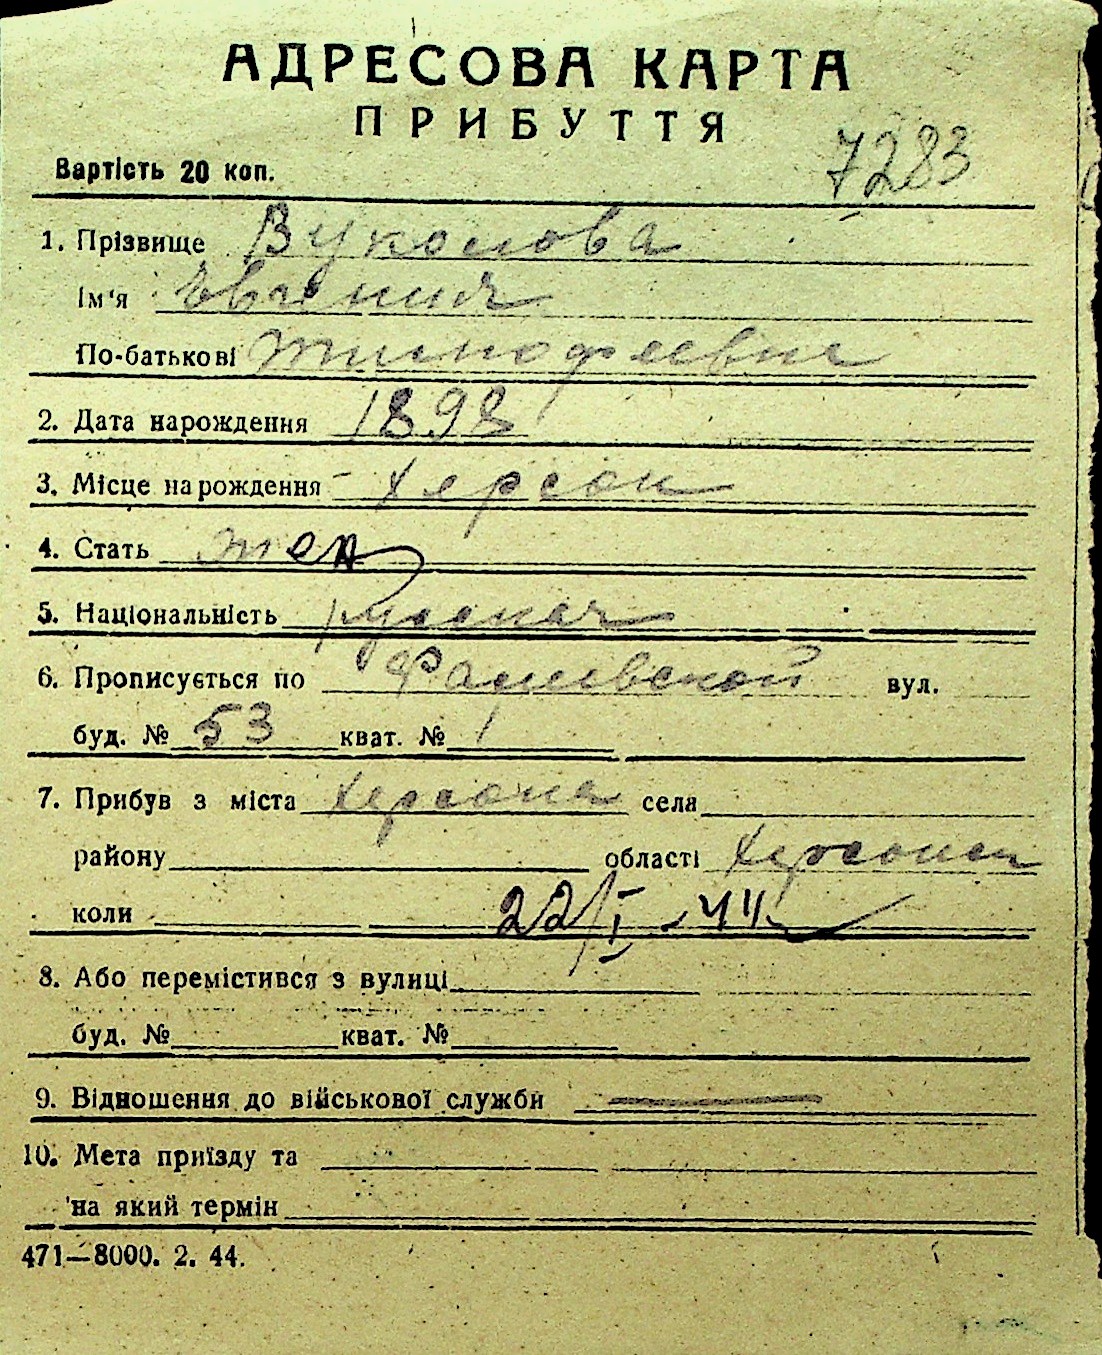 АДРЕСОВА КАРТА
ПРИБУТТЯ
7283
Вартість 20 коп.
1. Прізвище Вуколова
Ім'я Евгения
По-батькові Тимофеевна
2. Дата народження 1898
3. Місце народження - Херсон
4. Стать жен
5. Національність русская
6. Прописується по вул.
буд. № 53 кват. № 1
7. Прибув з міста Херсона села
району області Херсонск
коли 22/I - 44
8. Або перемістився з вулиці
буд. № кват. №
9. Відношення до військової служби —
10. Мета приїзду та
на який термін
471—8000. 2. 44.